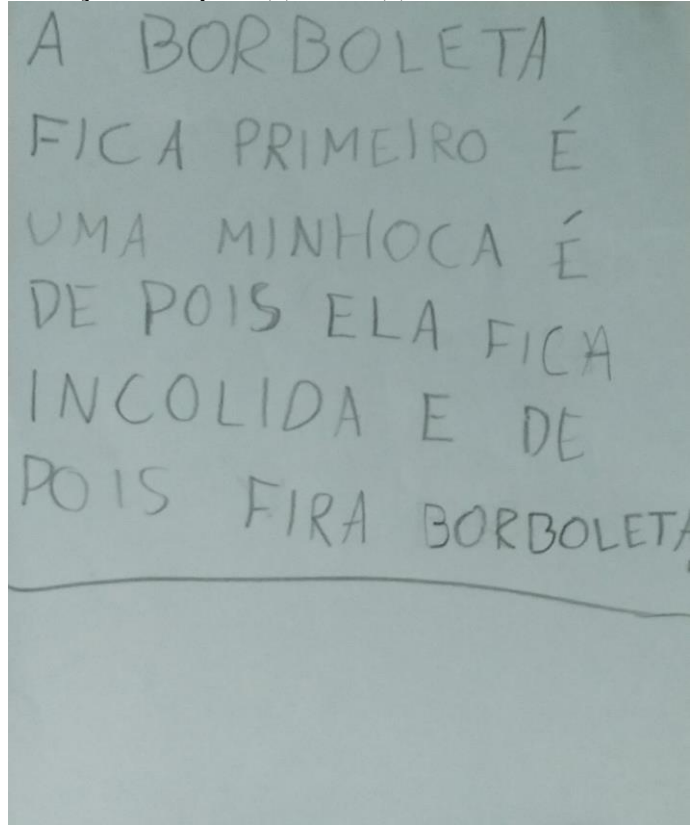 A BORBOLETA
FICA PRIMEIRO É
UMA MINHOCA É
DE POIS ELA FICA
INCOLIDA E DE
POIS FIRA BORBOLETA